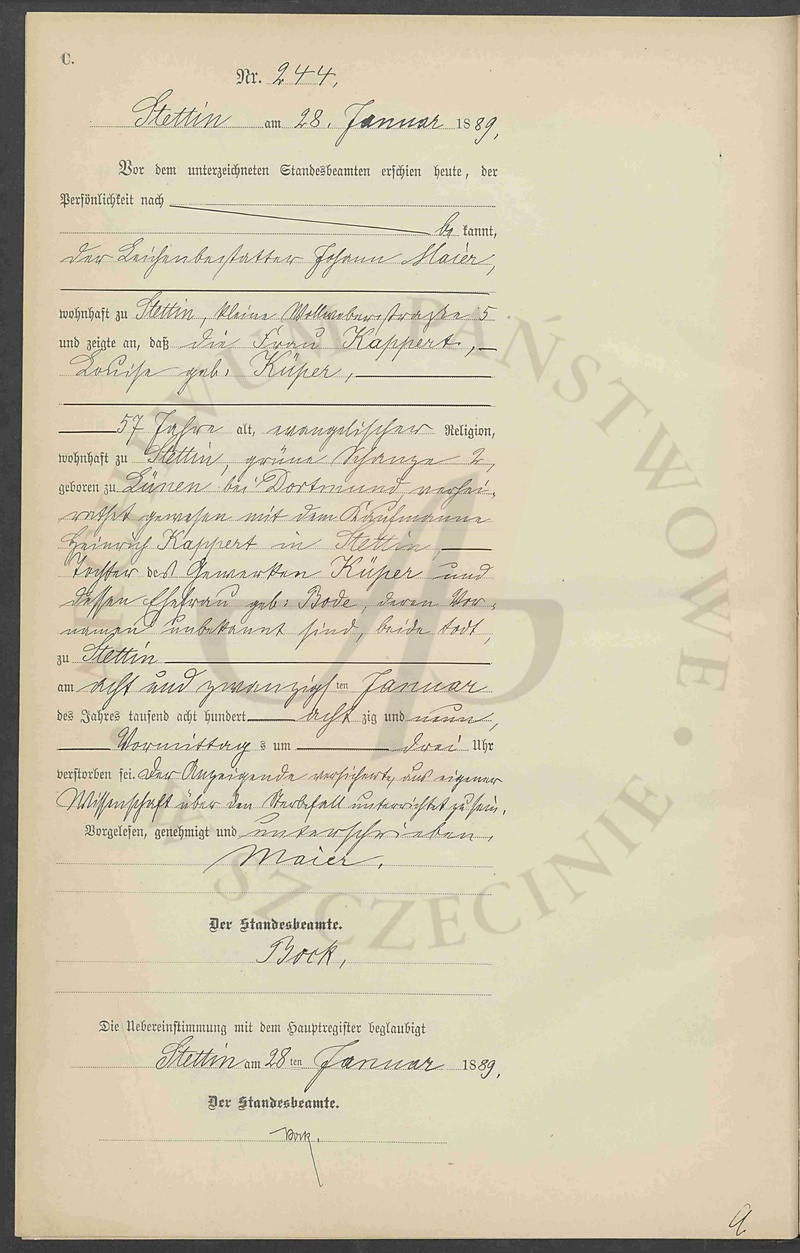 C.
Nr. 244,
Stettin am 28. Januar 1889,
Vor dem unterzeichneten Standesbeamten erschien heute, der
Persönlichkeit nach
be kannt,
der Leichenbestatter Johann Maier,
wohnhaft zu Stettin, kleine Wollweberstraße 5
und zeigte an, daß die Frau Kappert,
Louise geb: Küper,
57 Jahre alt, evangelischer Religion,
wohnhaft zu Stettin, grüne Schanze 2,
geboren zu Lünen bei Dortmund, verhei-
rathet gewesen mit dem Kaufmanne
Heinrich Kappert in Stettin,
Tochter des Gewerken Küper und
dessen Ehefrau geb: Bode, deren Vor-
namen unbekannt sind, beide todt,
zu Stettin
am acht und zwanzigsten Januar
des Jahres tausend acht hundert achtzig und neun,
Vormittags um drei Uhr
verstorben sei. Der Anzeigende versicherte, aus eigener
Wissenschaft über den Sterbefall unterrichtet zu sein.
Vorgelesen, genehmigt und unterschrieben.
Maier.
Der Standesbeamte.
Bock,
Die Uebereinstimmung mit dem Hauptregister beglaubigt
Stettin am 28ten Januar 1889.
Der Standesbeamte.
Bock.
9
ARCHIWUM PAŃSTWOWE • W SZCZECINIE •